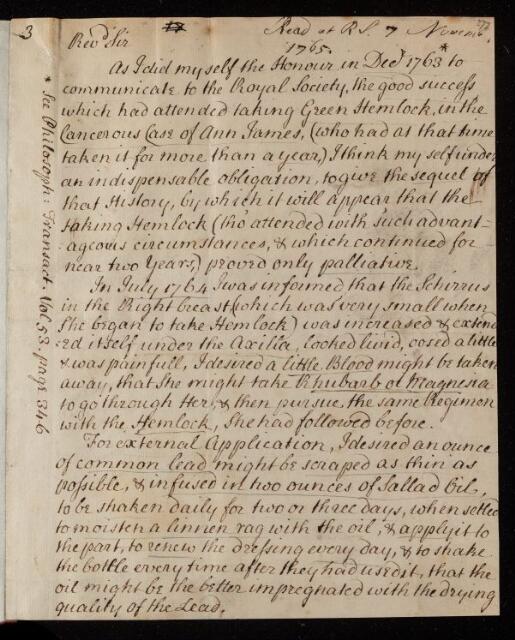 3
Read at R.S. 7 Novemb.
1765.
Revd Sir
As I did my self the Honour in Decr 1763* to
communicate to the Royal Society, the good success
which had attended taking Green Hemlock, in the
Cancerous Case of Ann James, (who had at that time
taken it for more than a year,) I think my self under
an indispensable obligation, to give the sequel of
that History, by which it will appear that the
taking Hemlock (tho' attended with such advant-
:ageous circumstances, & which continued for
near two Years,) proved only palliative.
In July 1764 I was informed that the Schirrus
in the Right breast (which was very small when
She began to take Hemlock) was increased & extend
:ed it self under the Axilla, looked livid, oosed a little
& was painfull, I desired a little Blood might be taken
away, that She might take Rhubarb or Magnesia
to go through Her, & then pursue the same Regimen
with the Hemlock, She had followed before.
For external Application, I desired an ounce
of common lead might be scraped as thin as
possible, & infused in two ounces of Sallad Oil,
to be shaken daily for two or three days, when settled
to moisten a linnen rag with the oil, & apply it to
the part, to renew the dressing every day, & to shake
the bottle every time after they had used it, that the
oil might be the better impregnated with the drying
quality of the Lead.
* See Philosoph: Transact. Vol 53. page 346